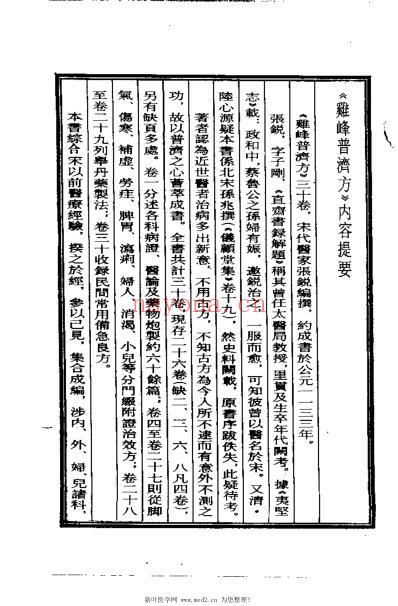 《雞峰普濟方》内容提要
《雞峰普濟方》三十卷，宋代醫家張銳編撰，約成書於公元一一三三年。
張銳，字子剛，《直齋書錄解題》稱其曾任太醫局教授，里貫及生卒年代闕考。據《夷堅
志》載：政和中，蔡魯公之孫婦有娠，邀銳治病，一服而愈，可知彼曾以醫名於宋。又清·
陸心源疑本書係北宋孫兆撰（《儀顧堂集》卷十九），然史料闕載，原書序跋佚失，此疑待考。
著者認為近世醫者治病多出新意，不用古方，不知古方為今人所不逮而有意外不測之
功，故以普濟之心薈萃成書。全書共計三十卷，現存二十六卷（缺二、三、六、八凡四卷），
另有缺頁多處。卷一分述各科病證、醫論及藥物炮製約六十餘篇；卷四至卷二十七則從脚
氣、傷寒、補虛、勞疰、脾胃、瀉痢、婦人、消渴、小兒等分門綴附證治效方；卷二十八
至卷二十九列舉丹藥製法；卷三十收録民間常用備急良方。
本書綜合宋以前醫療經驗，揆之於經，參以己見，集合成編，涉内、外、婦、兒諸科，
新叶医学网 www.med2.cn 为您整理!